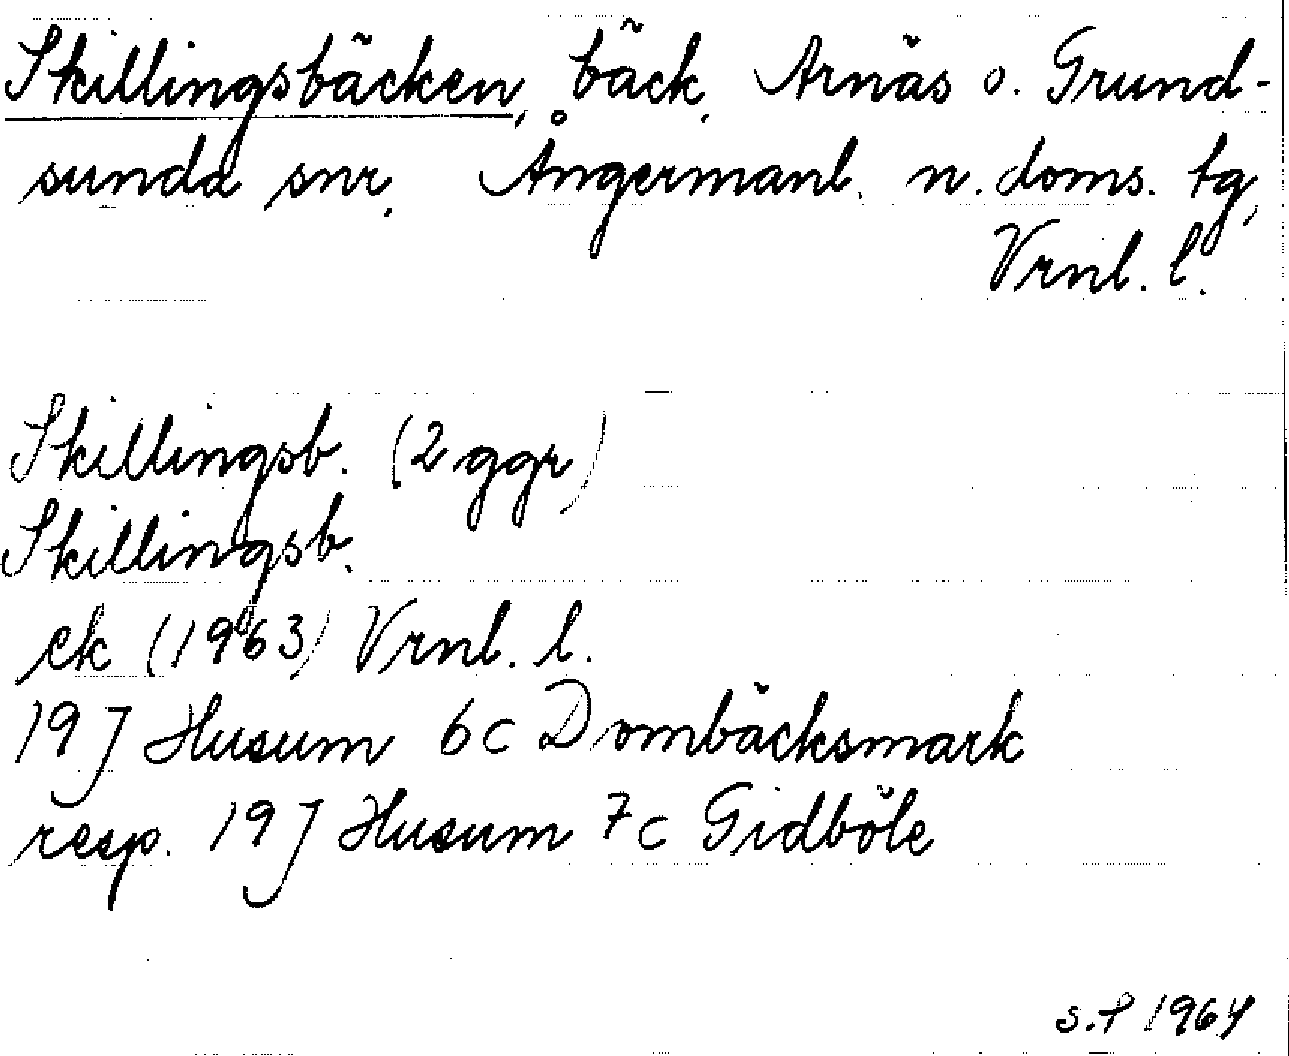 Skillingsbäcken, bäck, Arnäs o. Grund-
sunda snr, Ångermanl. n. doms. tg,
Vrnl. l.
Skillingsb. (2 ggr)
Skillingsb.
ek (1963) Vrnl. l.
19 J Husum 6c Dombäcksmark
resp. 19 J Husum 7c Gidböle
s.f 1964